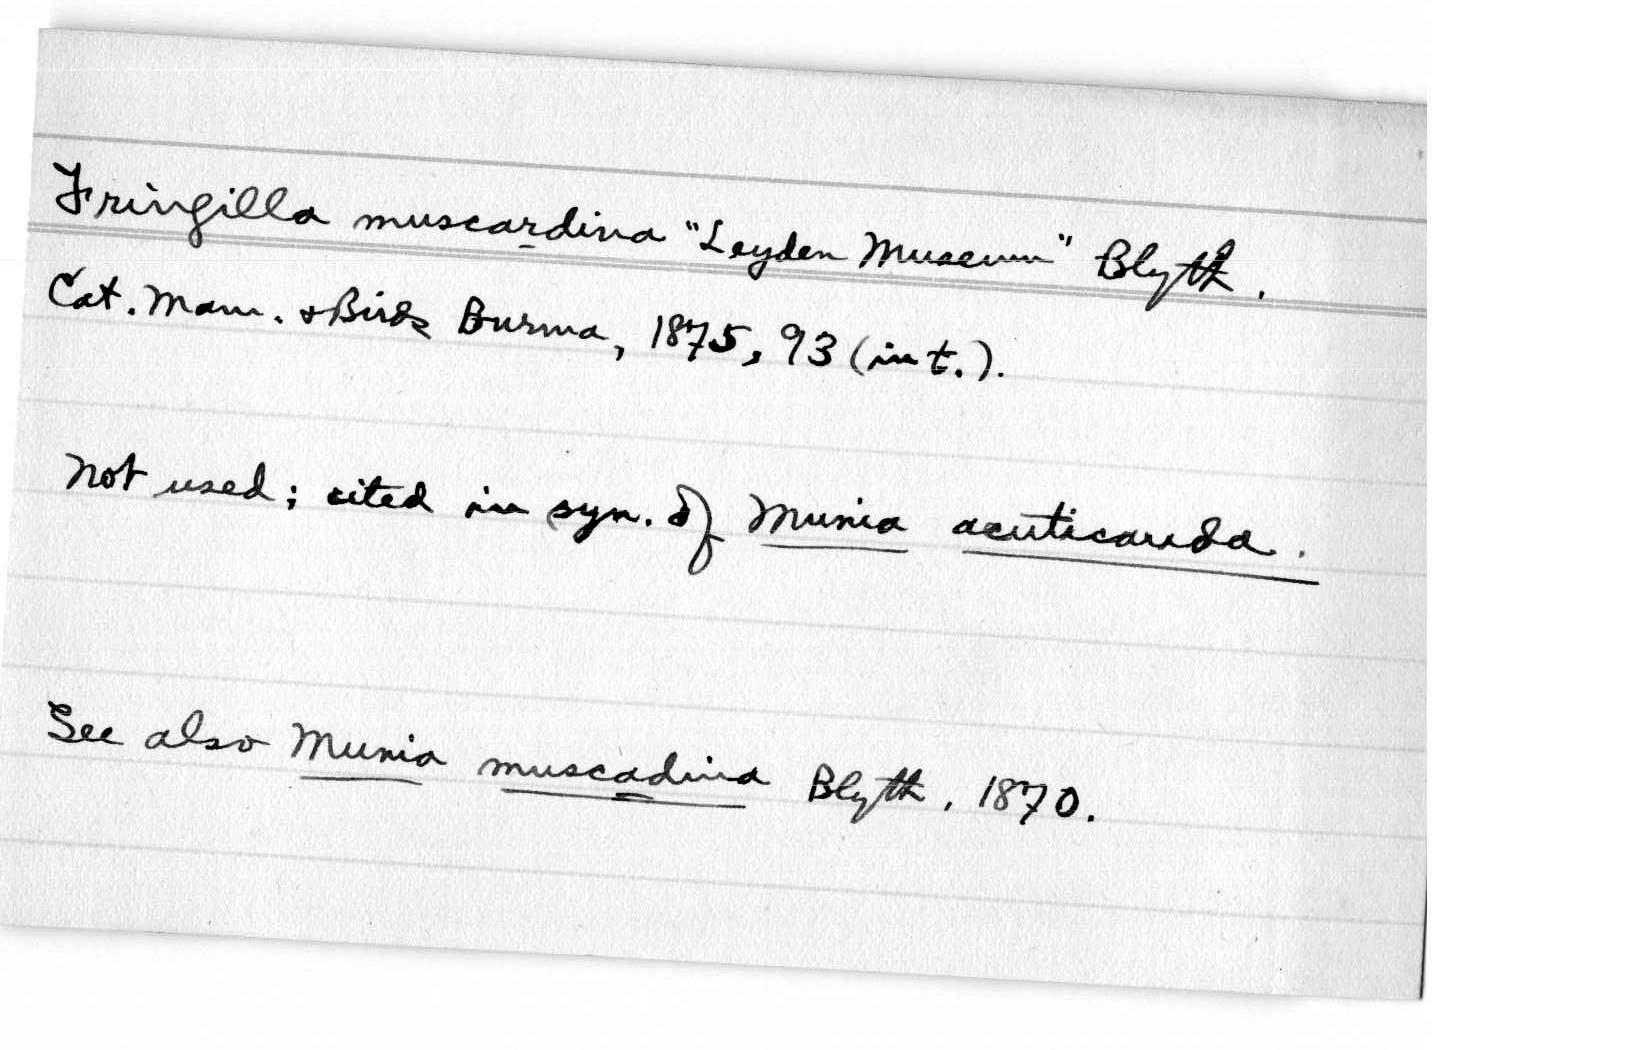 Fringilla muscardina "Leyden Museum" Blyth.
Cat. Mam. & Birds Burma, 1875, 93 (in t.).
Not used; cited in syn. of Munia acuticauda.
See also Munia muscadina Blyth, 1870.